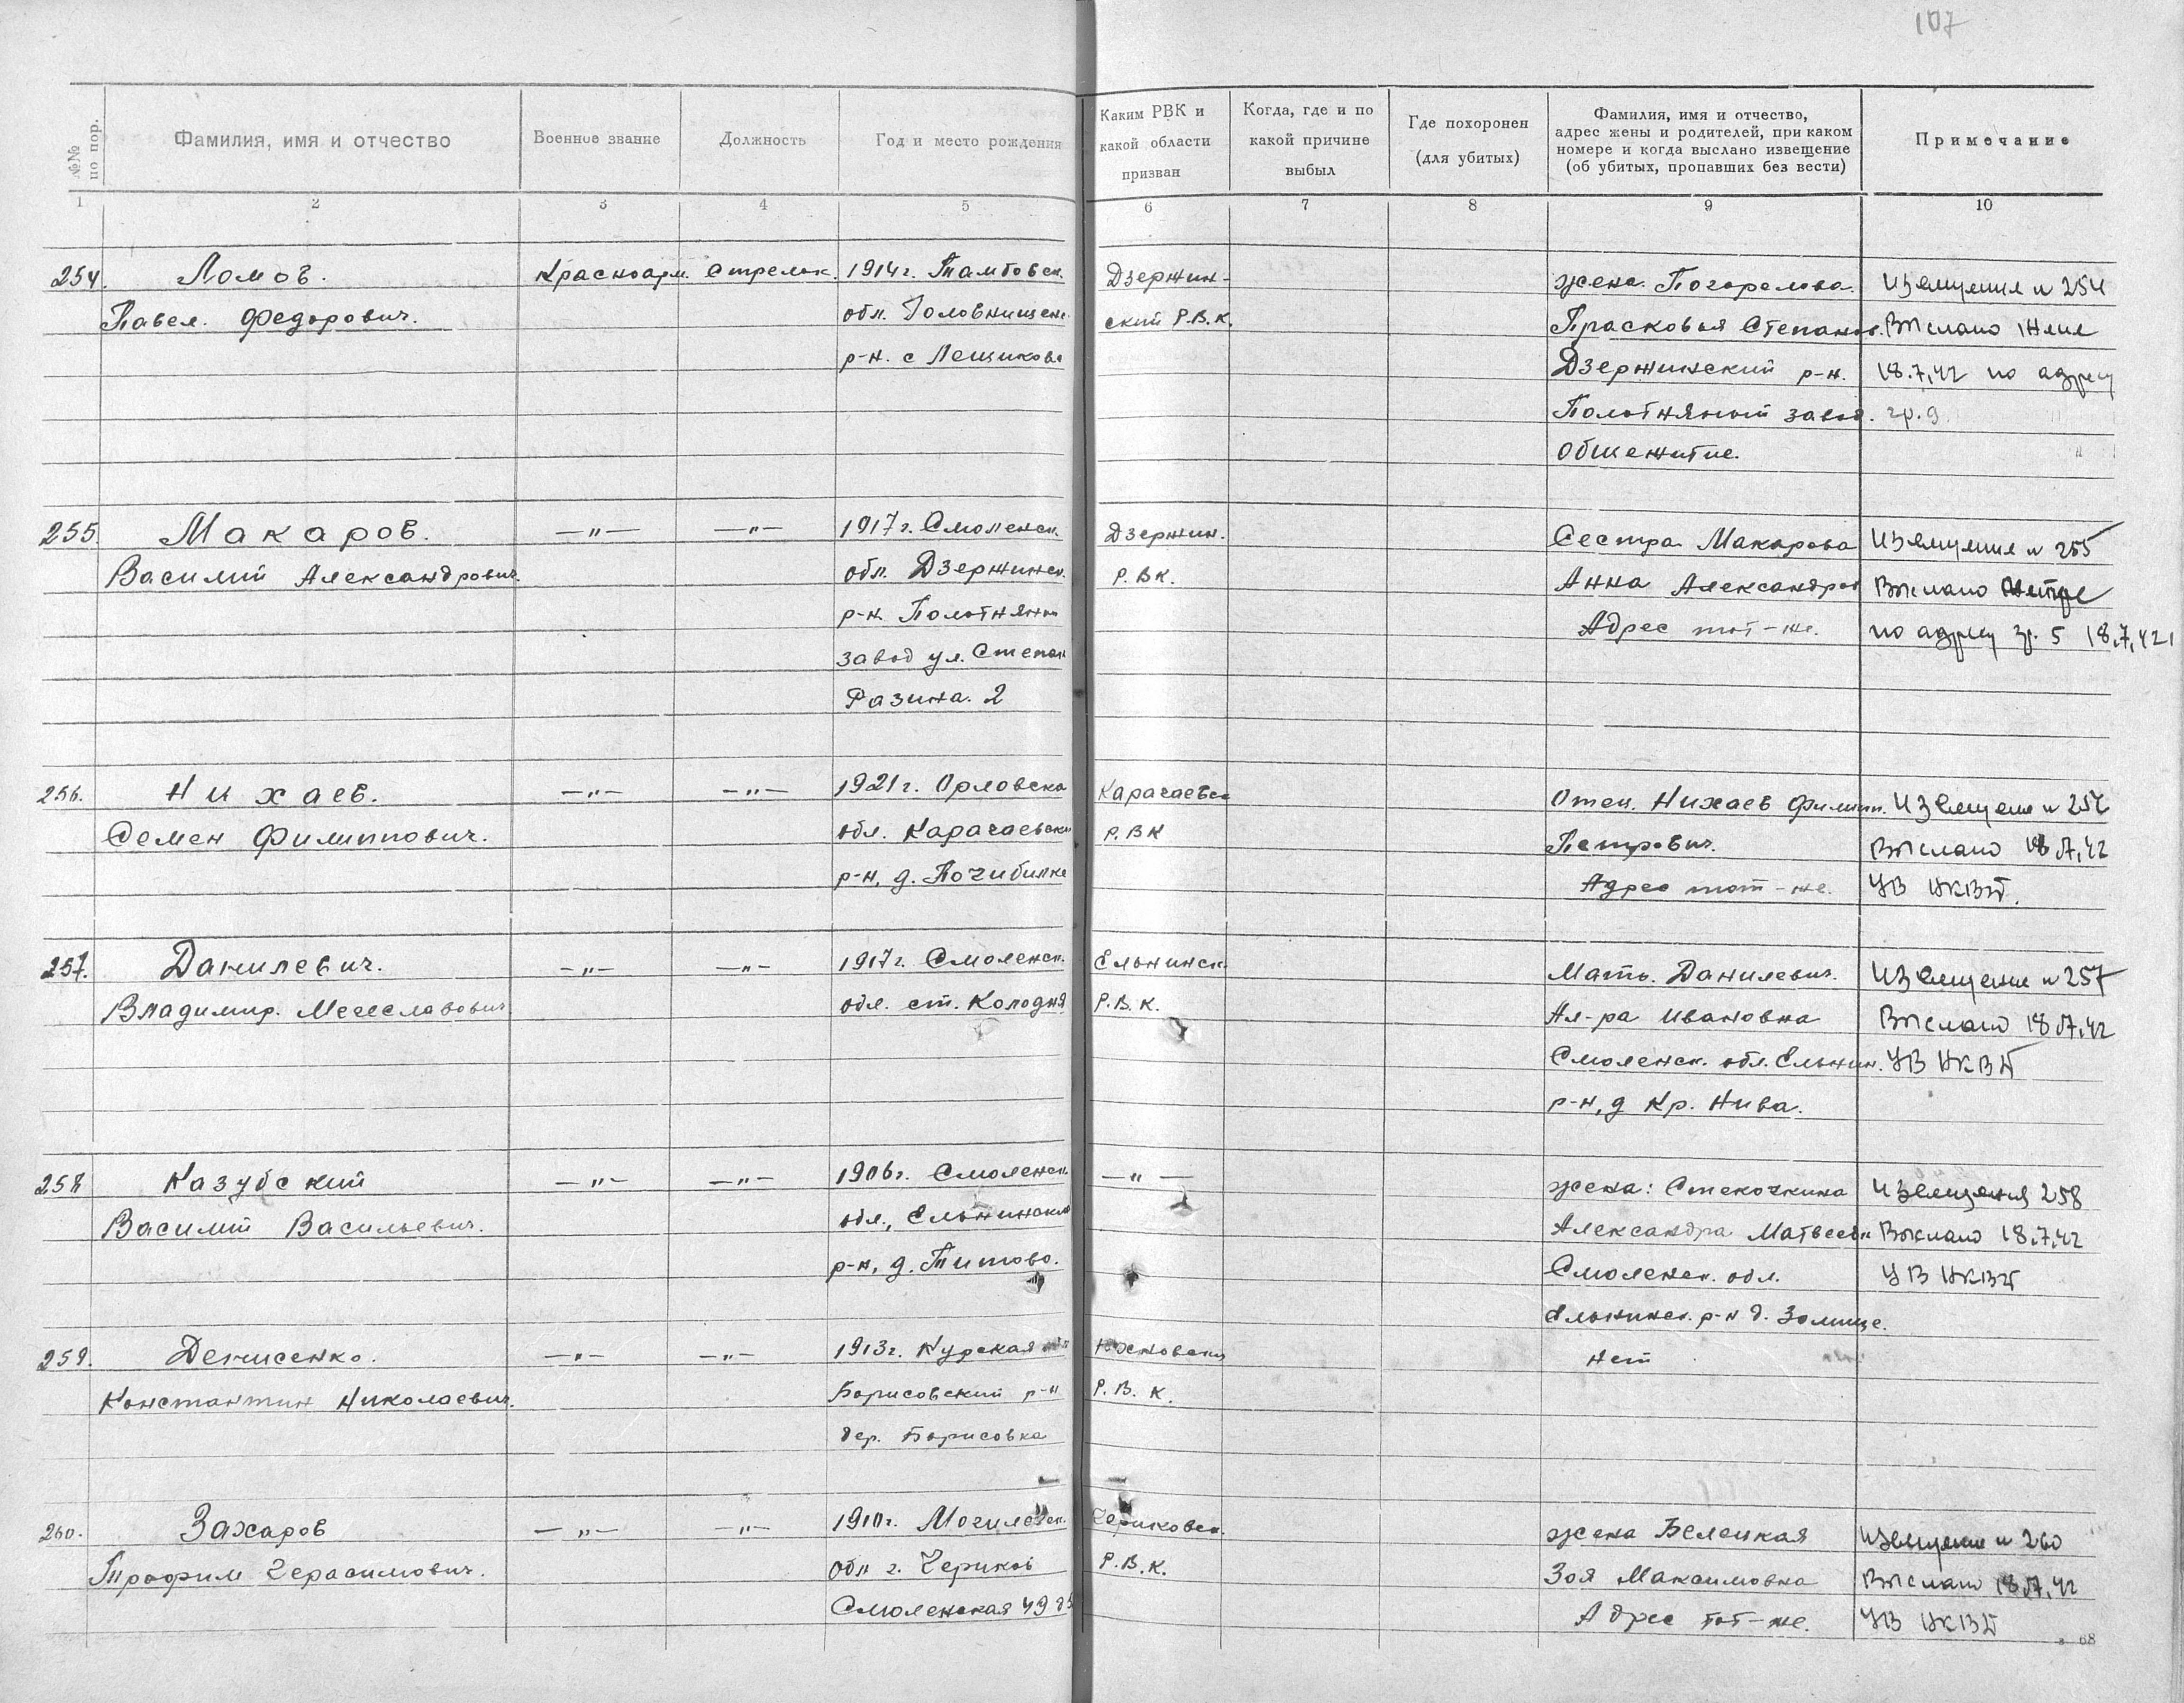 107
№№ по пор.
Фамилия, имя и отчество
Военное звание
Должность
Год и место рождения
Каким РВК и
какой области
призван
Когда, где и по
какой причине
выбыл
Где похоронен
(для убитых)
Фамилия, имя и отчество,
адрес жены и родителей, при каком
номере и когда выслано извещение
(об убитых, пропавших без вести)
Примечание
1 2 3 4 5 6 7 8 9 10
254. Ломов. Красноарм. Стрелок. 1914 г. Тамбовск. Дзержин- жена. Погорелова. Извещения н 254
Павел. Федорович. обл. Головнищен. ский Р.В.К. Прасковья Степанов. Выслано жене
р-н. с Лещиково Дзержинский р-н. 18.7.42 по адресу
Полотняный завод. гр. 9.
общежитие.
255. Макаров. —"— —"— 1917 г. Смоленск. Дзержин. Сестра Макарова Извещения н 255
Василий Александрович. обл. Дзержинск. Р.ВК. Анна Александров Выслано сестре
р-н. Полотнянн Адрес тот-же. по адресу гр. 5 18.7.42.
завод ул. Степан
Разина. 2
256. Нихаев. —"— —"— 1921 г. Орловска Карачаевск Отец. Нихаев Филипп. Извещение н 256
Семен Филиппович. обл. Карачаевски Р.ВК Петрович. Выслано 18.7.42
р-н, д. Почибилка Адрес тот-же. УВ НКВД.
257. Данилевич. —"— —"— 1917 г. Смоленск. Ельнинск. Мать. Данилевич. Извещение н 257
Владимир. Мечеславович обл. ст. Колодня Р.В.К. Ал-ра Ивановна Выслано 18.7.42
Смоленск. обл. Ельнин. УВ НКВД
р-н, д Кр. Нива.
258 Казубский —"— —"— 1906 г. Смоленск. —"— жена: Стекочкина Извещения 258
Василий Васильевич. обл., Ельнинский Александра Матвеевн Выслано 18.7.42
р-н, д. Титово. Смоленск. обл. УВ НКВД
Ельнинск. р-н д. Залище.
259. Денисенко. —"— —"— 1913 г. Курская Юхновски нет
Константин Николаевич. Борисовский р-н Р.В.К.
дер. Борисовка
260. Захаров —"— —"— 1910 г. Могилевск. Чериковск. жена Белецкая Извещение н 260
Трофим Герасимович. обл г. Чериков Р.В.К. Зоя Максимовна Выслано 18.7.42
Смоленская 49 Адрес тот-же. УВ НКВД
68